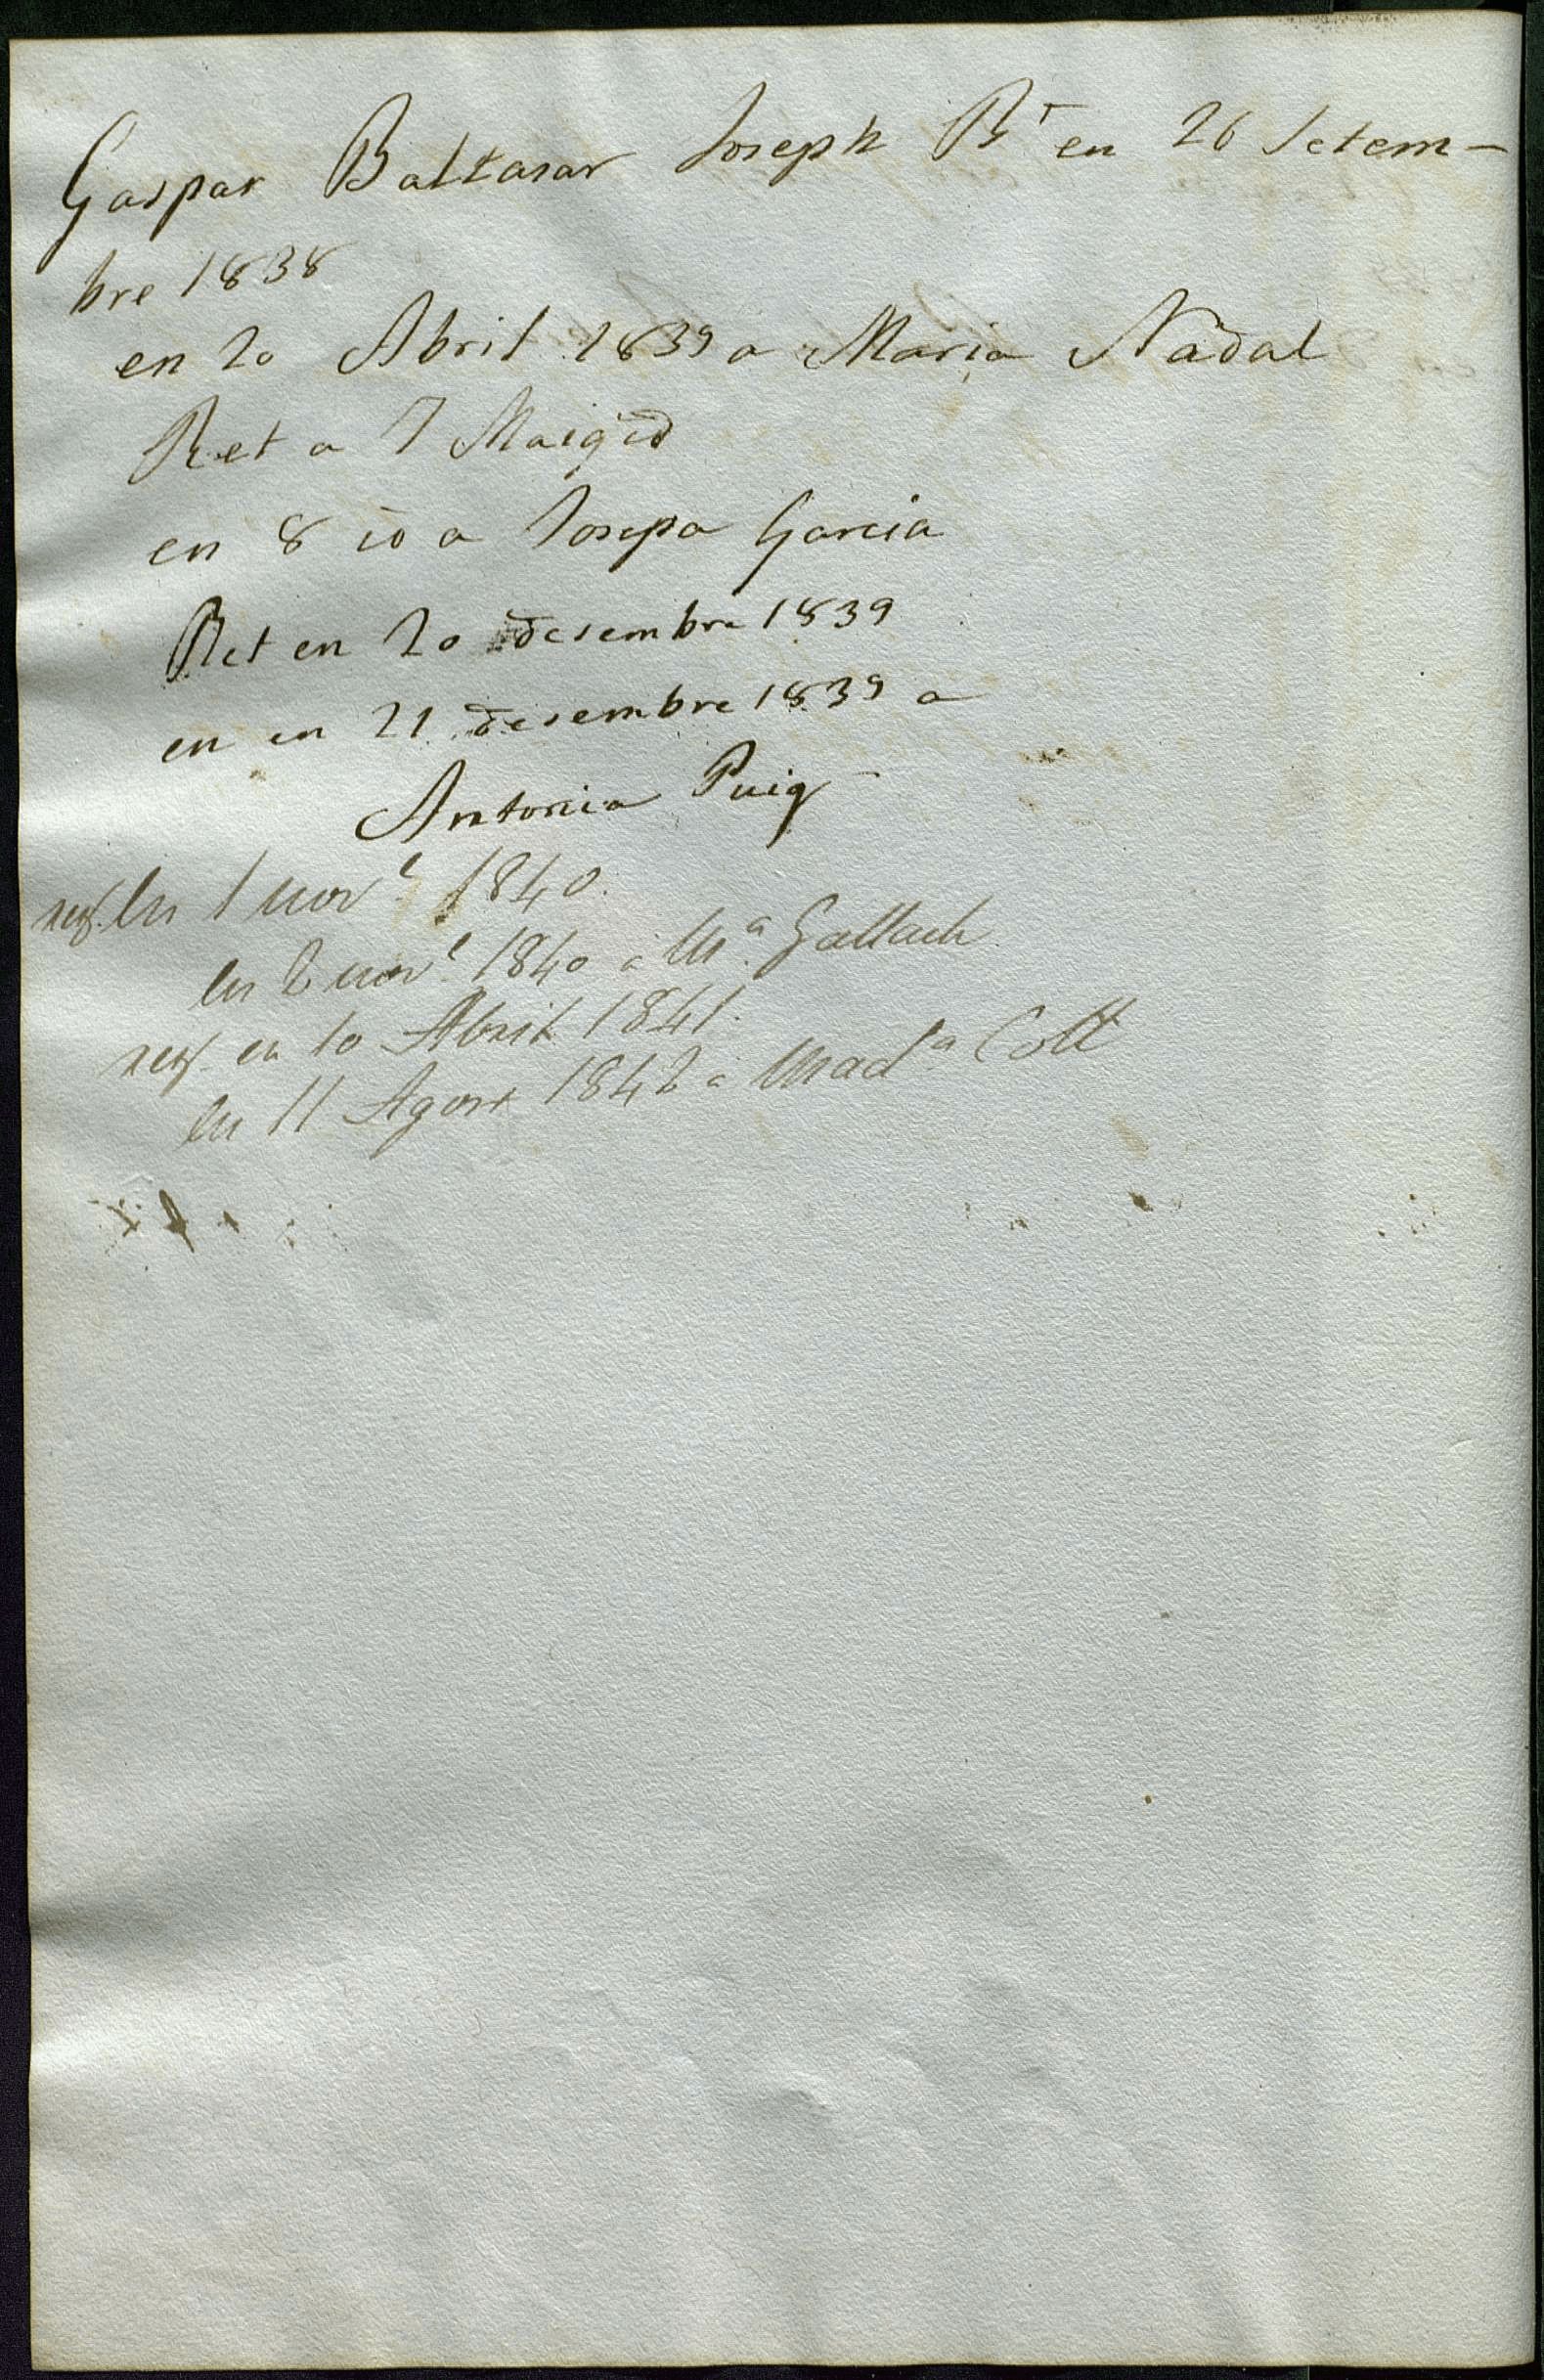 Gaspar Baltasar Joseph Bt en 26 Setem-
bre 1838
en 20 Abril 1839 a Maria Nadal
Ret a 7 Maig id
en 8 id a Josepa Garcia
Ret en 20 desembre 1839
en en 21 desembre 1839 a
Antonia Puig
En 1 nove 1840.
En 2 nove 1840 a Ma Gallach
en 10 Abril 1841.
En 11 Agost 1842 a Madna Coll